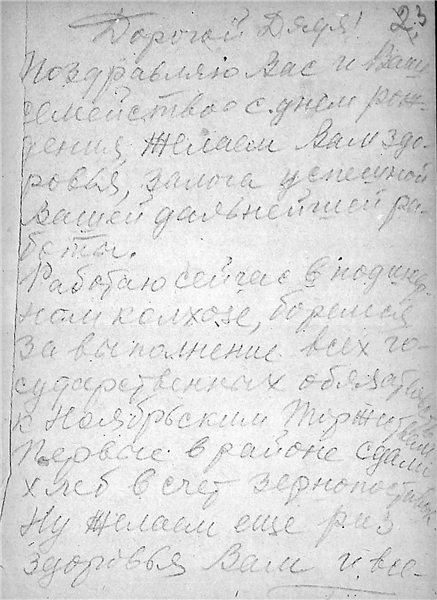 23
Дорогой Дядя!
Поздравляю Вас и Ваше
семейство с днем рож-
дения, желаем Вам здо-
ровья, залога успешной
Вашей дальнейшей ра-
боты.
Работаю сейчас в
ном колхозе, боремся
за выполнение всех го-
сударственных
к Ноябрьским Торжествам
Первые в районе сдали
хлеб в счет зернопоставок
Ну желаем еще раз
здоровья Вам и все-